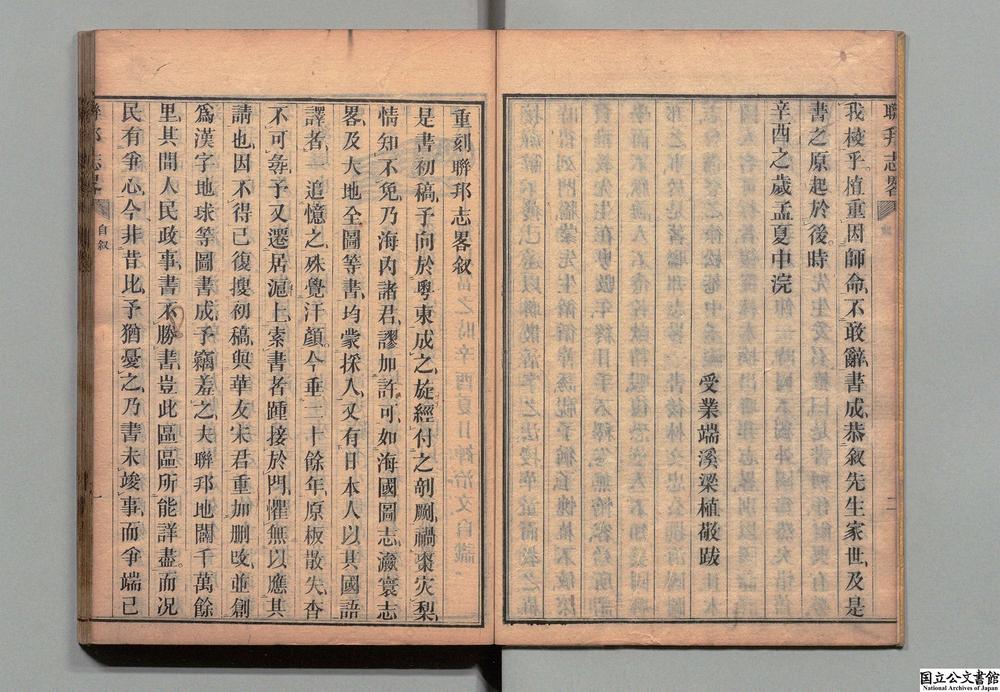 聯邦志畧
二
我棱乎植重因師命不敢辭書成恭叙先生家世及是
書之原起於後時
辛酉之歲孟夏中浣
受業端溪梁植敬跋
重刻聯邦志畧叙
是書初稿予向於粵東成之旋經付之剞劂禍棗灾梨
情知不免乃海內諸君謬加許可如海國圖志瀛寰志
畧及大地全圖等書均蒙採入又有日本人以其國語
譯者追憶之殊覺汗顏今垂二十餘年原板散失杳
不可尋予又遷居滬上索書者踵接於門懼無以應其
請也因不得已復搜初稿與華友宋君重加刪改並創
爲漢字地球等圖書成予竊羞之夫聯邦地闊千萬餘
里其間人民政事書不勝書豈此區區所能詳盡而况
民有爭心今非昔比予猶憂之乃書未竣事而爭端已
聯邦志畧
自叙
一
国立公文書館
National Archives of Japan